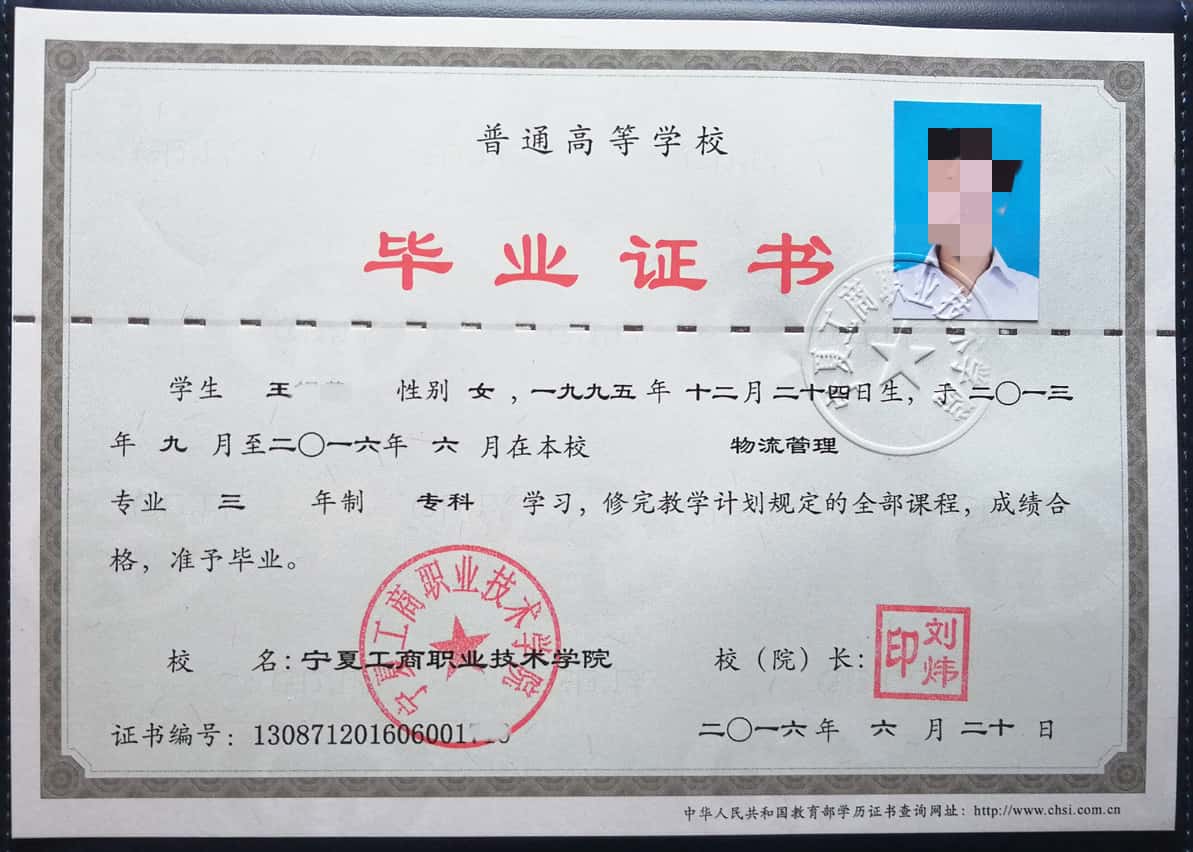 普通高等学校
毕业证书
学生 王 性别 女，一九九五 年 十二月 二十四日生，于 二〇一三
年 九 月至二〇一六年 六 月在本校 物流管理
专业 三 年制 专科 学习，修完教学计划规定的全部课程，成绩合
格，准予毕业。
宁夏工商职业技术学院
校 名：宁夏工商职业技术学院 校（院）长：
刘炜印
证书编号：130871201606001
二〇一六年 六 月 二十 日
中华人民共和国教育部学历证书查询网址：http://www.chsi.com.cn
宁夏工商职业技术学院